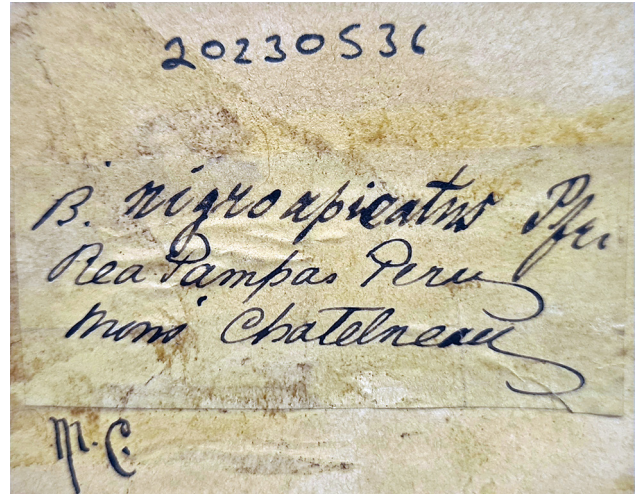 20230536
B. nigroapicatus Pfei
Rea Pampas Peru
Mons Chatelneau
M. C.